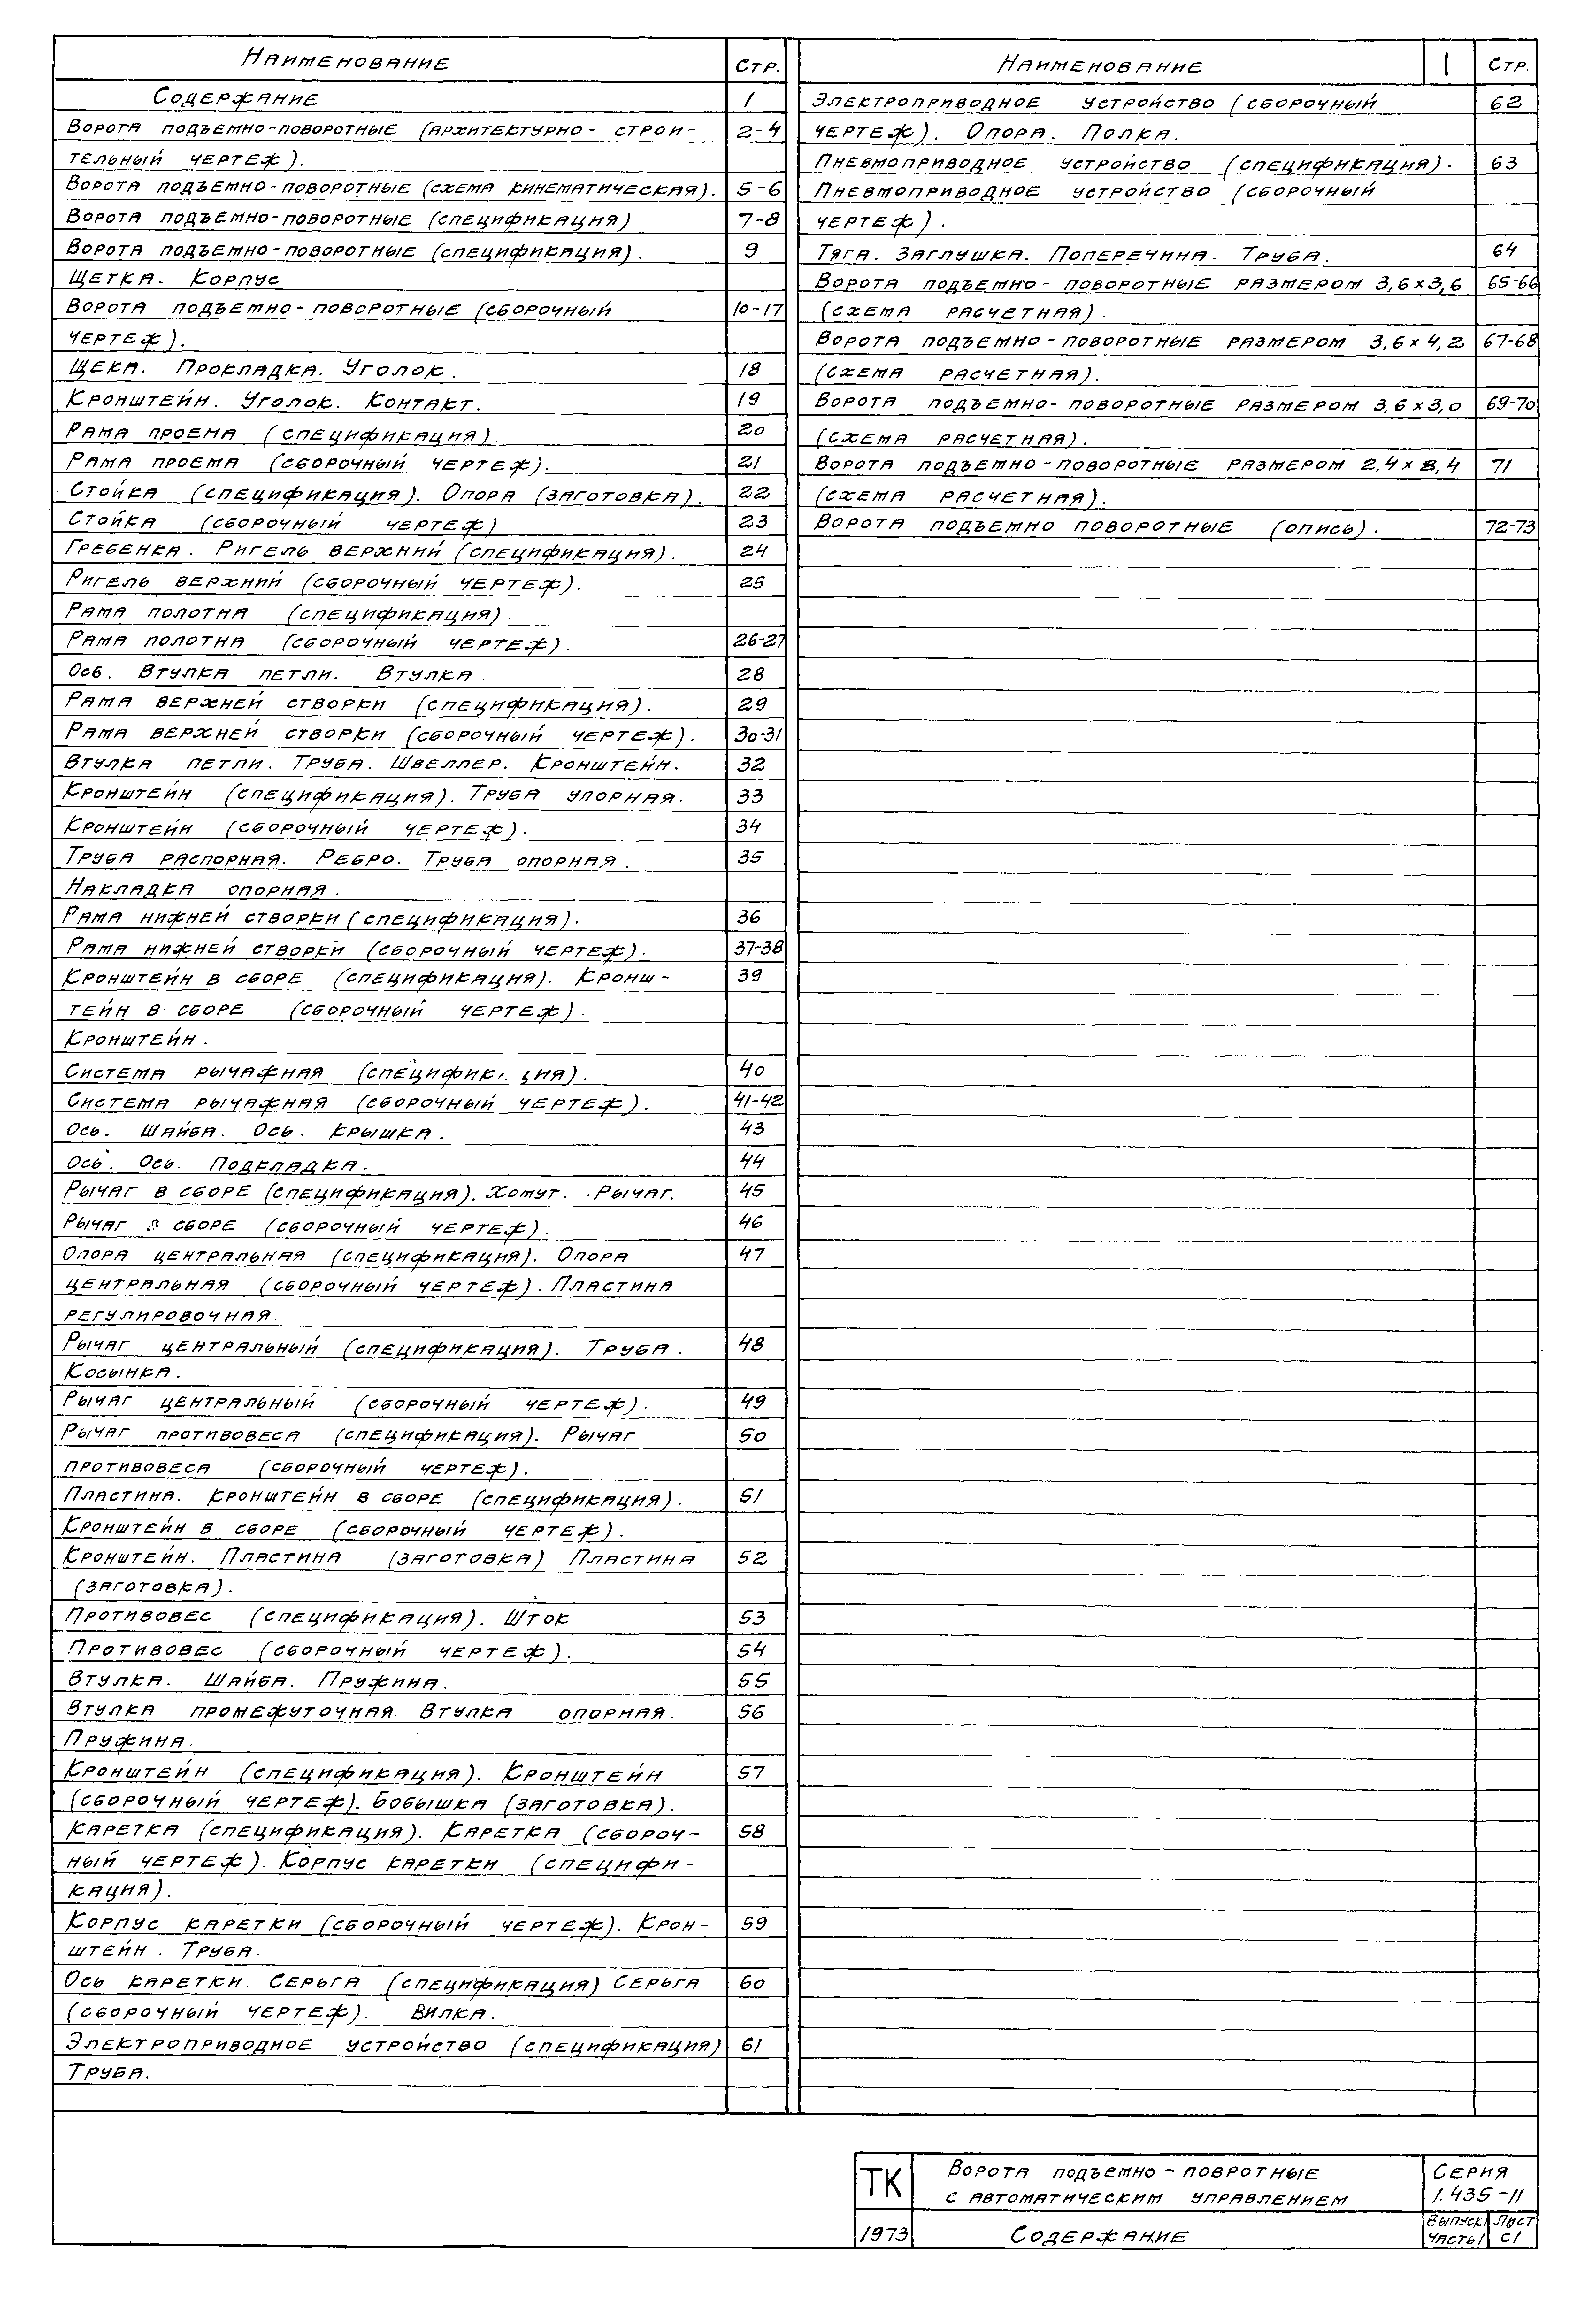 Наименование Стр.
Содержание 1
Ворота подъемно-поворотные (архитектурно-строи- 2-4
тельный чертеж).
Ворота подъемно-поворотные (схема кинематическая). 5-6
Ворота подъемно-поворотные (спецификация) 7-8
Ворота подъемно-поворотные (спецификация). 9
Щетка. Корпус
Ворота подъемно-поворотные (сборочный 10-17
чертеж).
Щека. Прокладка. Уголок. 18
Кронштейн. Уголок. Контакт. 19
Рама проема (спецификация). 20
Рама проема (сборочный чертеж). 21
Стойка (спецификация). Опора (заготовка). 22
Стойка (сборочный чертеж) 23
Гребенка. Ригель верхний (спецификация). 24
Ригель верхний (сборочный чертеж). 25
Рама полотна (спецификация).
Рама полотна (сборочный чертеж). 26-27
Ось. Втулка петли. Втулка. 28
Рама верхней створки (спецификация). 29
Рама верхней створки (сборочный чертеж). 30-31
Втулка петли. Труба. Швеллер. Кронштейн. 32
Кронштейн (спецификация). Труба упорная. 33
Кронштейн (сборочный чертеж). 34
Труба распорная. Ребро. Труба опорная. 35
Накладка опорная.
Рама нижней створки (спецификация). 36
Рама нижней створки (сборочный чертеж). 37-38
Кронштейн в сборе (спецификация). Кронш- 39
тейн в сборе (сборочный чертеж).
Кронштейн.
Система рычажная (специфик ция). 40
Система рычажная (сборочный чертеж). 41-42
Ось. Шайба. Ось. Крышка. 43
Ось. Ось. Подкладка. 44
Рычаг в сборе (спецификация). Хомут. Рычаг. 45
Рычаг в сборе (сборочный чертеж). 46
Опора центральная (спецификация). Опора 47
центральная (сборочный чертеж). Пластина
регулировочная.
Рычаг центральный (спецификация). Труба. 48
Косынка.
Рычаг центральный (сборочный чертеж). 49
Рычаг противовеса (спецификация). Рычаг 50
противовеса (сборочный чертеж).
Пластина. Кронштейн в сборе (спецификация). 51
Кронштейн в сборе (сборочный чертеж).
Кронштейн. Пластина (заготовка) Пластина 52
(заготовка).
Противовес (спецификация). Шток 53
Противовес (сборочный чертеж). 54
Втулка. Шайба. Пружина. 55
Втулка промежуточная. Втулка опорная. 56
Пружина.
Кронштейн (спецификация). Кронштейн 57
(сборочный чертеж). Бобышка (заготовка).
Каретка (спецификация). Каретка (сбороч- 58
ный чертеж). Корпус каретки (специфи-
кация).
Корпус каретки (сборочный чертеж). Крон- 59
штейн. Труба.
Ось каретки. Серьга (спецификация) Серьга 60
(сборочный чертеж). Вилка.
Электроприводное устройство (спецификация) 61
Труба.
Наименование 1 Стр.
Электроприводное устройство (сборочный 62
чертеж). Опора. Полка.
Пневмоприводное устройство (спецификация). 63
Пневмоприводное устройство (сборочный
чертеж).
Тяга. Заглушка. Поперечина. Труба. 64
Ворота подъемно-поворотные размером 3,6×3,6 65-66
(схема расчетная).
Ворота подъемно-поворотные размером 3,6×4,2 67-68
(схема расчетная).
Ворота подъемно-поворотные размером 3,6×3,0 69-70
(схема расчетная).
Ворота подъемно-поворотные размером 2,4× 71
(схема расчетная).
Ворота подъемно поворотные (опись). 72-73
ТК Ворота подъемно-повротные Серия
с автоматическим управлением 1.435-11
1973 Содержание Выпуск 1 Лист
Часть 1 С1